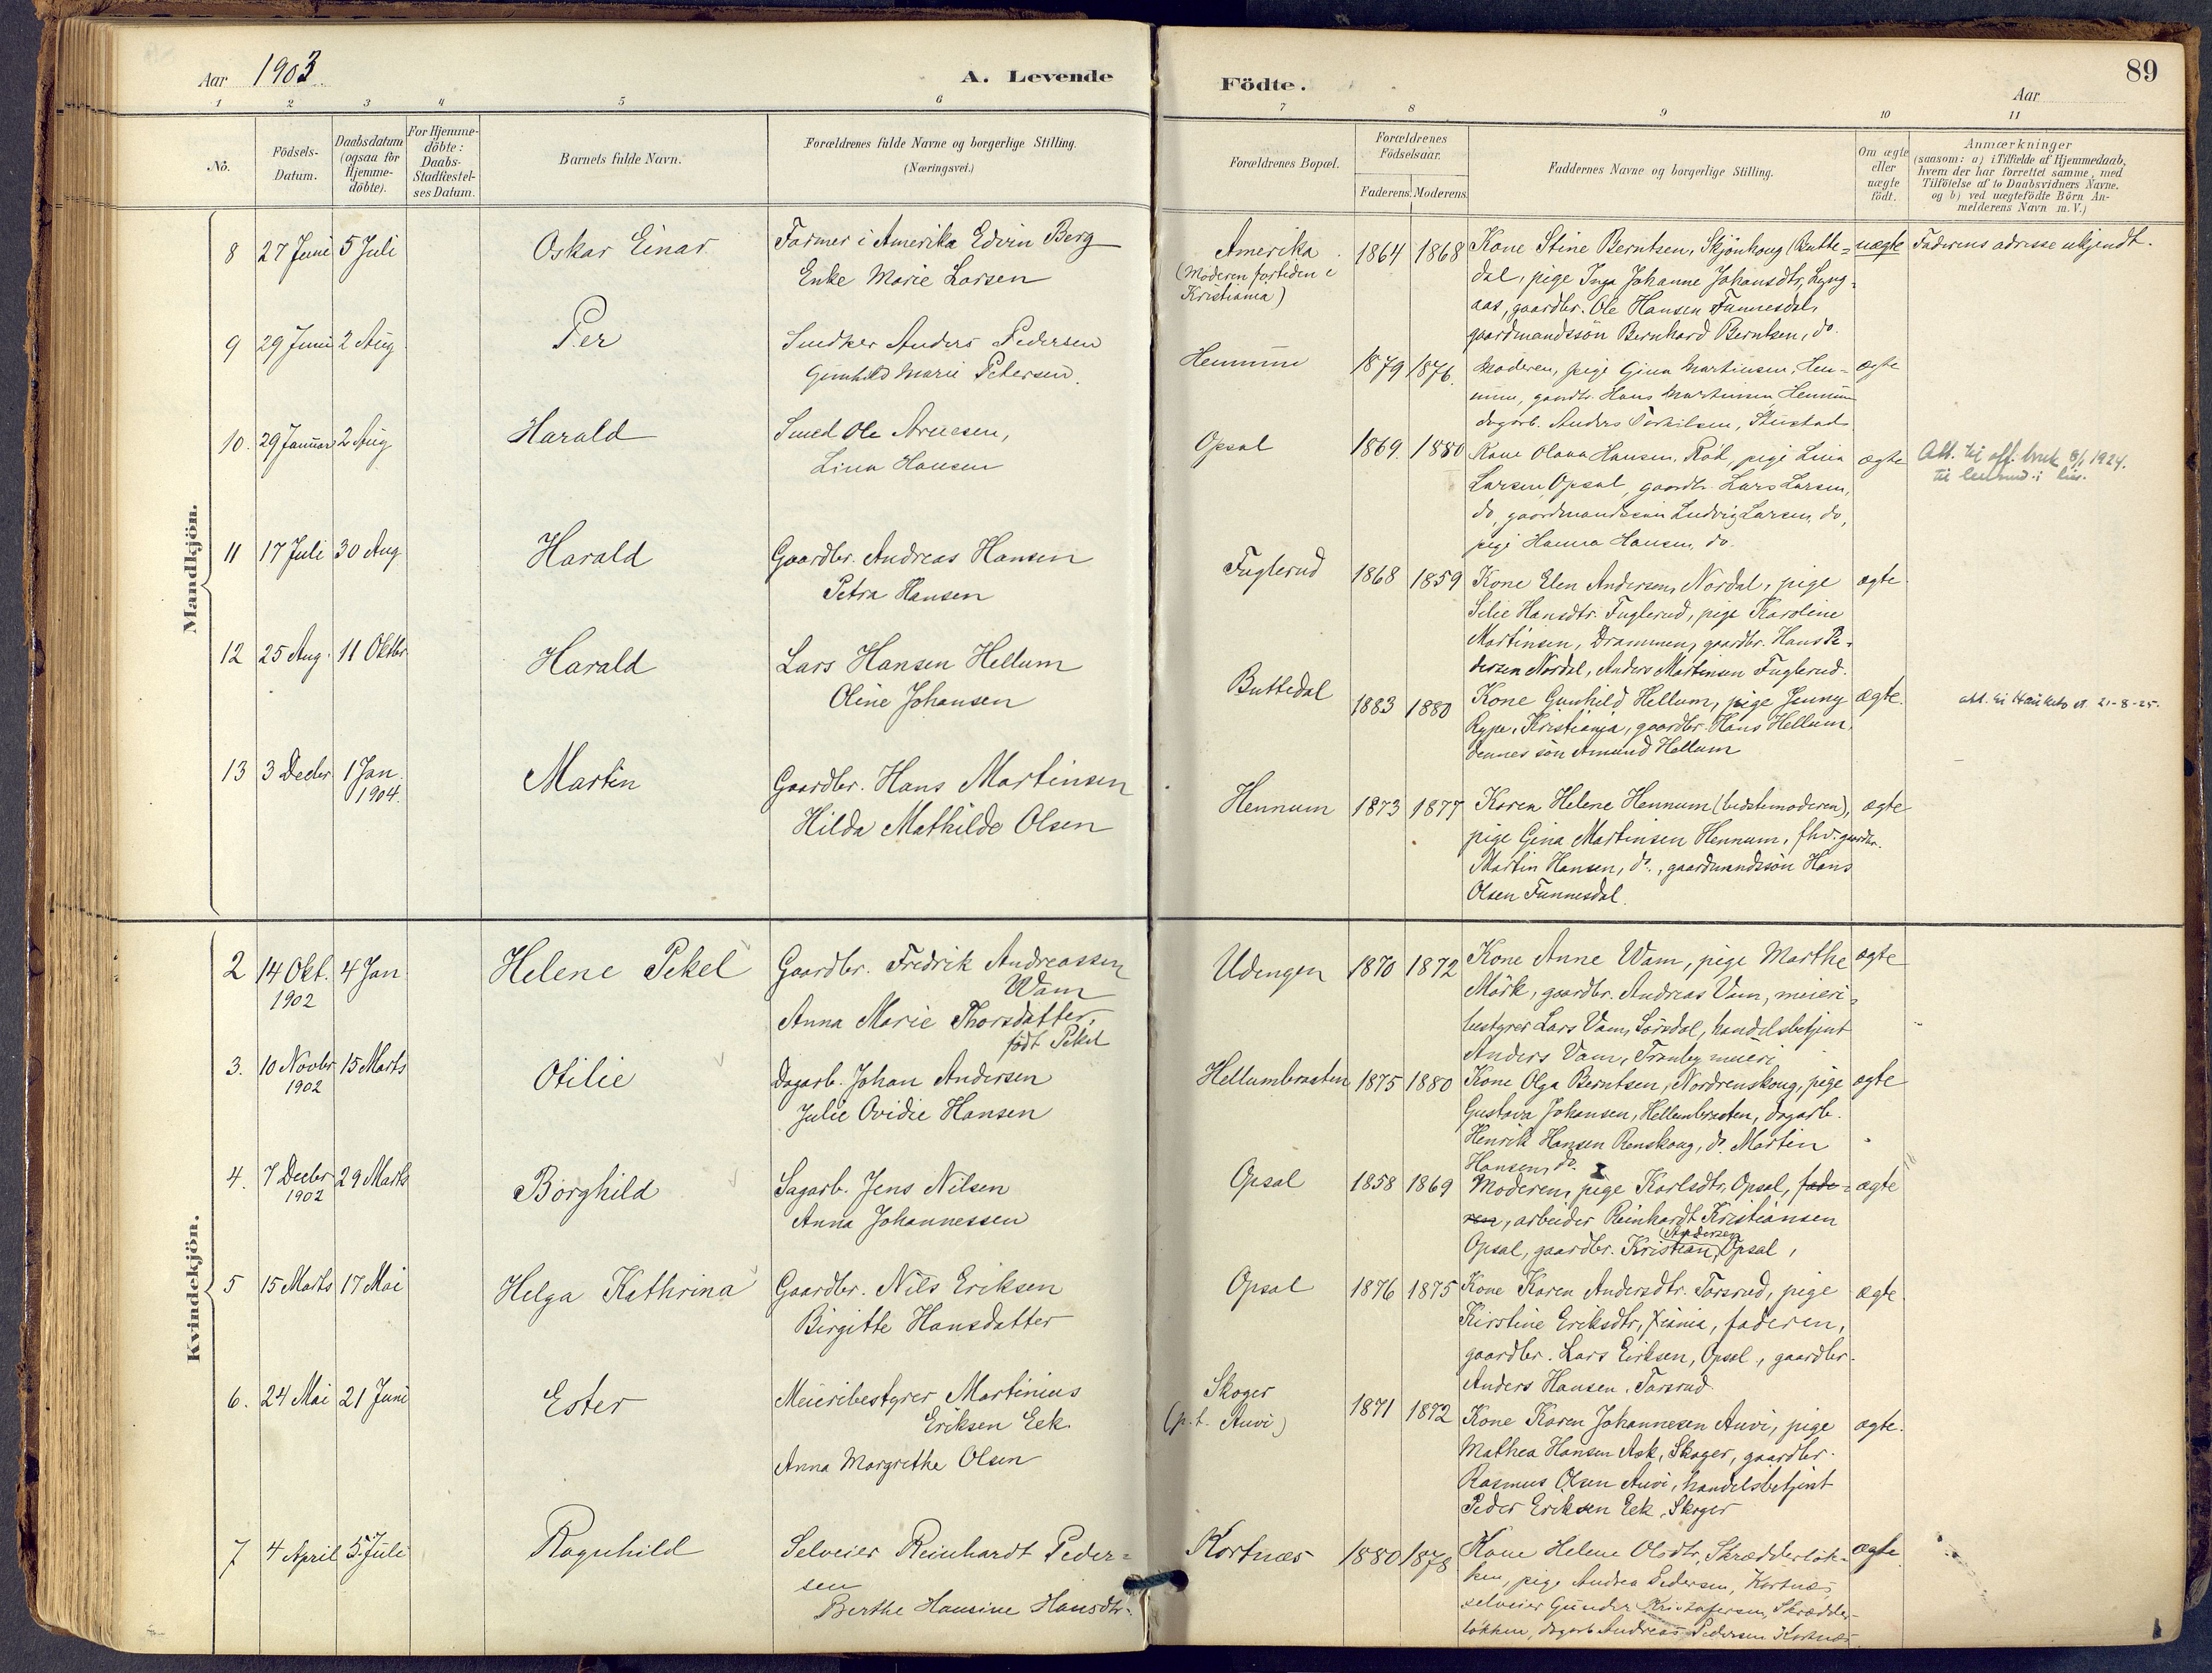 Aar 1903
A. Levende
Födte.
89
Aar
1 2 3 4 5 6 7 8 9 10 11
No.
Födsels-Datum.
Daabsdatum (ogsaa for Hjemme-döbte).
For Hjemme-döbte: Daabs-Stadfæstel-ses Datum.
Barnets fulde Navn.
Forældrenes fulde Navne og borgerlige Stilling.
(Næringsvei.)
Forældrenes Bopæl.
Forældrenes Födselsaar.
Faderens. Moderens.
Faddernes Navne og borgerlige Stilling.
Om ægte eller uægte födt.
Anmærkninger
(saasom: a) i Tilfælde af Hjemmedaab,
hvem der har forrettet samme, med
Tilföielse af to Daabsvidners Navne.
og b) ved uægtefödte Börn An-
melderens Navn m. V.)
Mandkjön.
8 27 Juni 5 Juli Oskar Einar
Farmer i Amerika Edvin Berg
Enke Marie Larsen
Amerika
(Moderen fortiden i
Kristiania)
1864 1868
Kone Stine Berntsen, Skjönhoug (Butte-
dal, pige Inga Johanne Johansdtr, Lyng-
aas, gaardbr. Ole Hansen Funnesdal,
gaardmandssön Bernhard Berntsen, do.
uægte
Faderens adresse ukjendt.
9 29 Juni 2 Aug Per
Snedker Anders Pedersen
Gunhild Marie Petersen.
Hennum
1879 1876.
Moderen, pige Gina Martinsen, Hen-
num, gaardbr. Hans Martinsen, Hennum
dagarb. Anders Torkilsen, Stustad
ægte
10. 29 Januar 2 Aug Harald
Smed Ole Arnesen,
Lina Hansen
Opsal
1869. 1880
Kone Olava Hansen, Röd, pige Lina
Larsen Opsal, gaardbr. Lars Larsen,
do, gaardmandssön Ludvig Larsen, do,
pige Hanna Hansen, do.
ægte
Att. til off. bruk 8/1 1924.
11 17 Juli 30 Aug Harald
Gaardbr. Andreas Hansen
Petra Hansen
Fuglerud
1868 1859
Kone Elen Andersen, Nordal, pige
Silie Hansdtr. Fuglerud, pige Karoline
Martinsen, Drammen, gaardbr. Hans Pe-
dersen Nordal, Anders Martinsen Fuglerud.
ægte
12 25 Aug. 11 Oktbr Harald
Lars Hansen Hellum
Oline Johansen
Buttedal
1883 1880
Kone Gunhild Hellum, pige Jenny
Rype, Kristiania, gaardbr. Hans Hellum,
dennes sön Amund Hellum
ægte.
21-8-25.
13 3 Decbr 1 Jan. 1904. Martin
Gaardbr. Hans Martinsen
Hilda Mathilde Olsen
Hennum
1873 1877
Karen Helene Hennum (bedstemoderen),
pige Gina Martinsen Hennum, fhv. gaardbr.
Martin Hansen, do., gaardmandssön Hans
Olsen Funnesdal.
ægte
Kvindekjön.
2 14 Okt. 1902 4 Jan Helene Pekel
Gaardbr. Fredrik Andreassen
Wam
Anna Marie Thorsdatter,
födt Pekel
Udengen
1870 1872
Kone Anne Wam, pige Marthe
Mörk, gaardbr. Andreas Vam, meieri-
bestyrer Lars Vam, Sörsdal, handelsbetjent
Anders Vam, Tranby meieri
ægte
3. 10 Novbr 1902 15 Marts Otilie
Dagarb. Johan Andersen
Julie Ovidie Hansen
Hellumbraaten
1875 1880
Kone Olga Berntsen, Nordrenskoug, pige
Gustava Johansen, Hellumbraaten, dagarb.
Henrik Hansen Renskoug, do. Martin
Hansen, do.
ægte
4. 7 Decbr 1902 29 Marts Borghild
Sagarb. Jens Nilsen
Anna Johannessen
Opsal
1858 1869
Moderen, pige Karlsdtr, Opsal, fade-
ren, arbeider Reinhardt Kristiansen
Opsal, gaardbr. Kristian (Andersen) Opsal,
ægte
5 15 Marts 17 Mai Helga Kathrina
Gaardbr. Nils Eriksen
Birgitte Hansdatter
Opsal
1876 1875
Kone Karen Andersdtr. Tarsrud, pige
Kirstine Eriksdtr, Xiania, faderen,
gaardbr. Lars Eriksen, Opsal, gaardbr.
Anders Hansen, Tarsrud
ægte
6. 24 Mai 21 Juni Ester
Meieribestyrer Martinius
Eriksen Eek
Anna Margrethe Olsen
Skoger
(p.t. Auvi)
1871 1872
Kone Karen Johannesen Auvi, pige
Mathea Hansen Ask, Skoger, gaardbr.
Rasmus Olsen Auvi, handelsbetjent
Peder Eriksen Eek, Skoger
ægte.
7 4 April 5. Juli Ragnhild
Selveier Reinhardt Peder-
sen
Berthe Hansine Hansdtr.
Kortnæs
1880 1878
Kone Helene Olsdtr, Skrædderlök-
ken, pige Andrea Pedersen, Kortnæs
selveier Gunder Kristofersen, Skrædder-
lökken, dagarb Andreas Pedersen Kortnæs
ægte